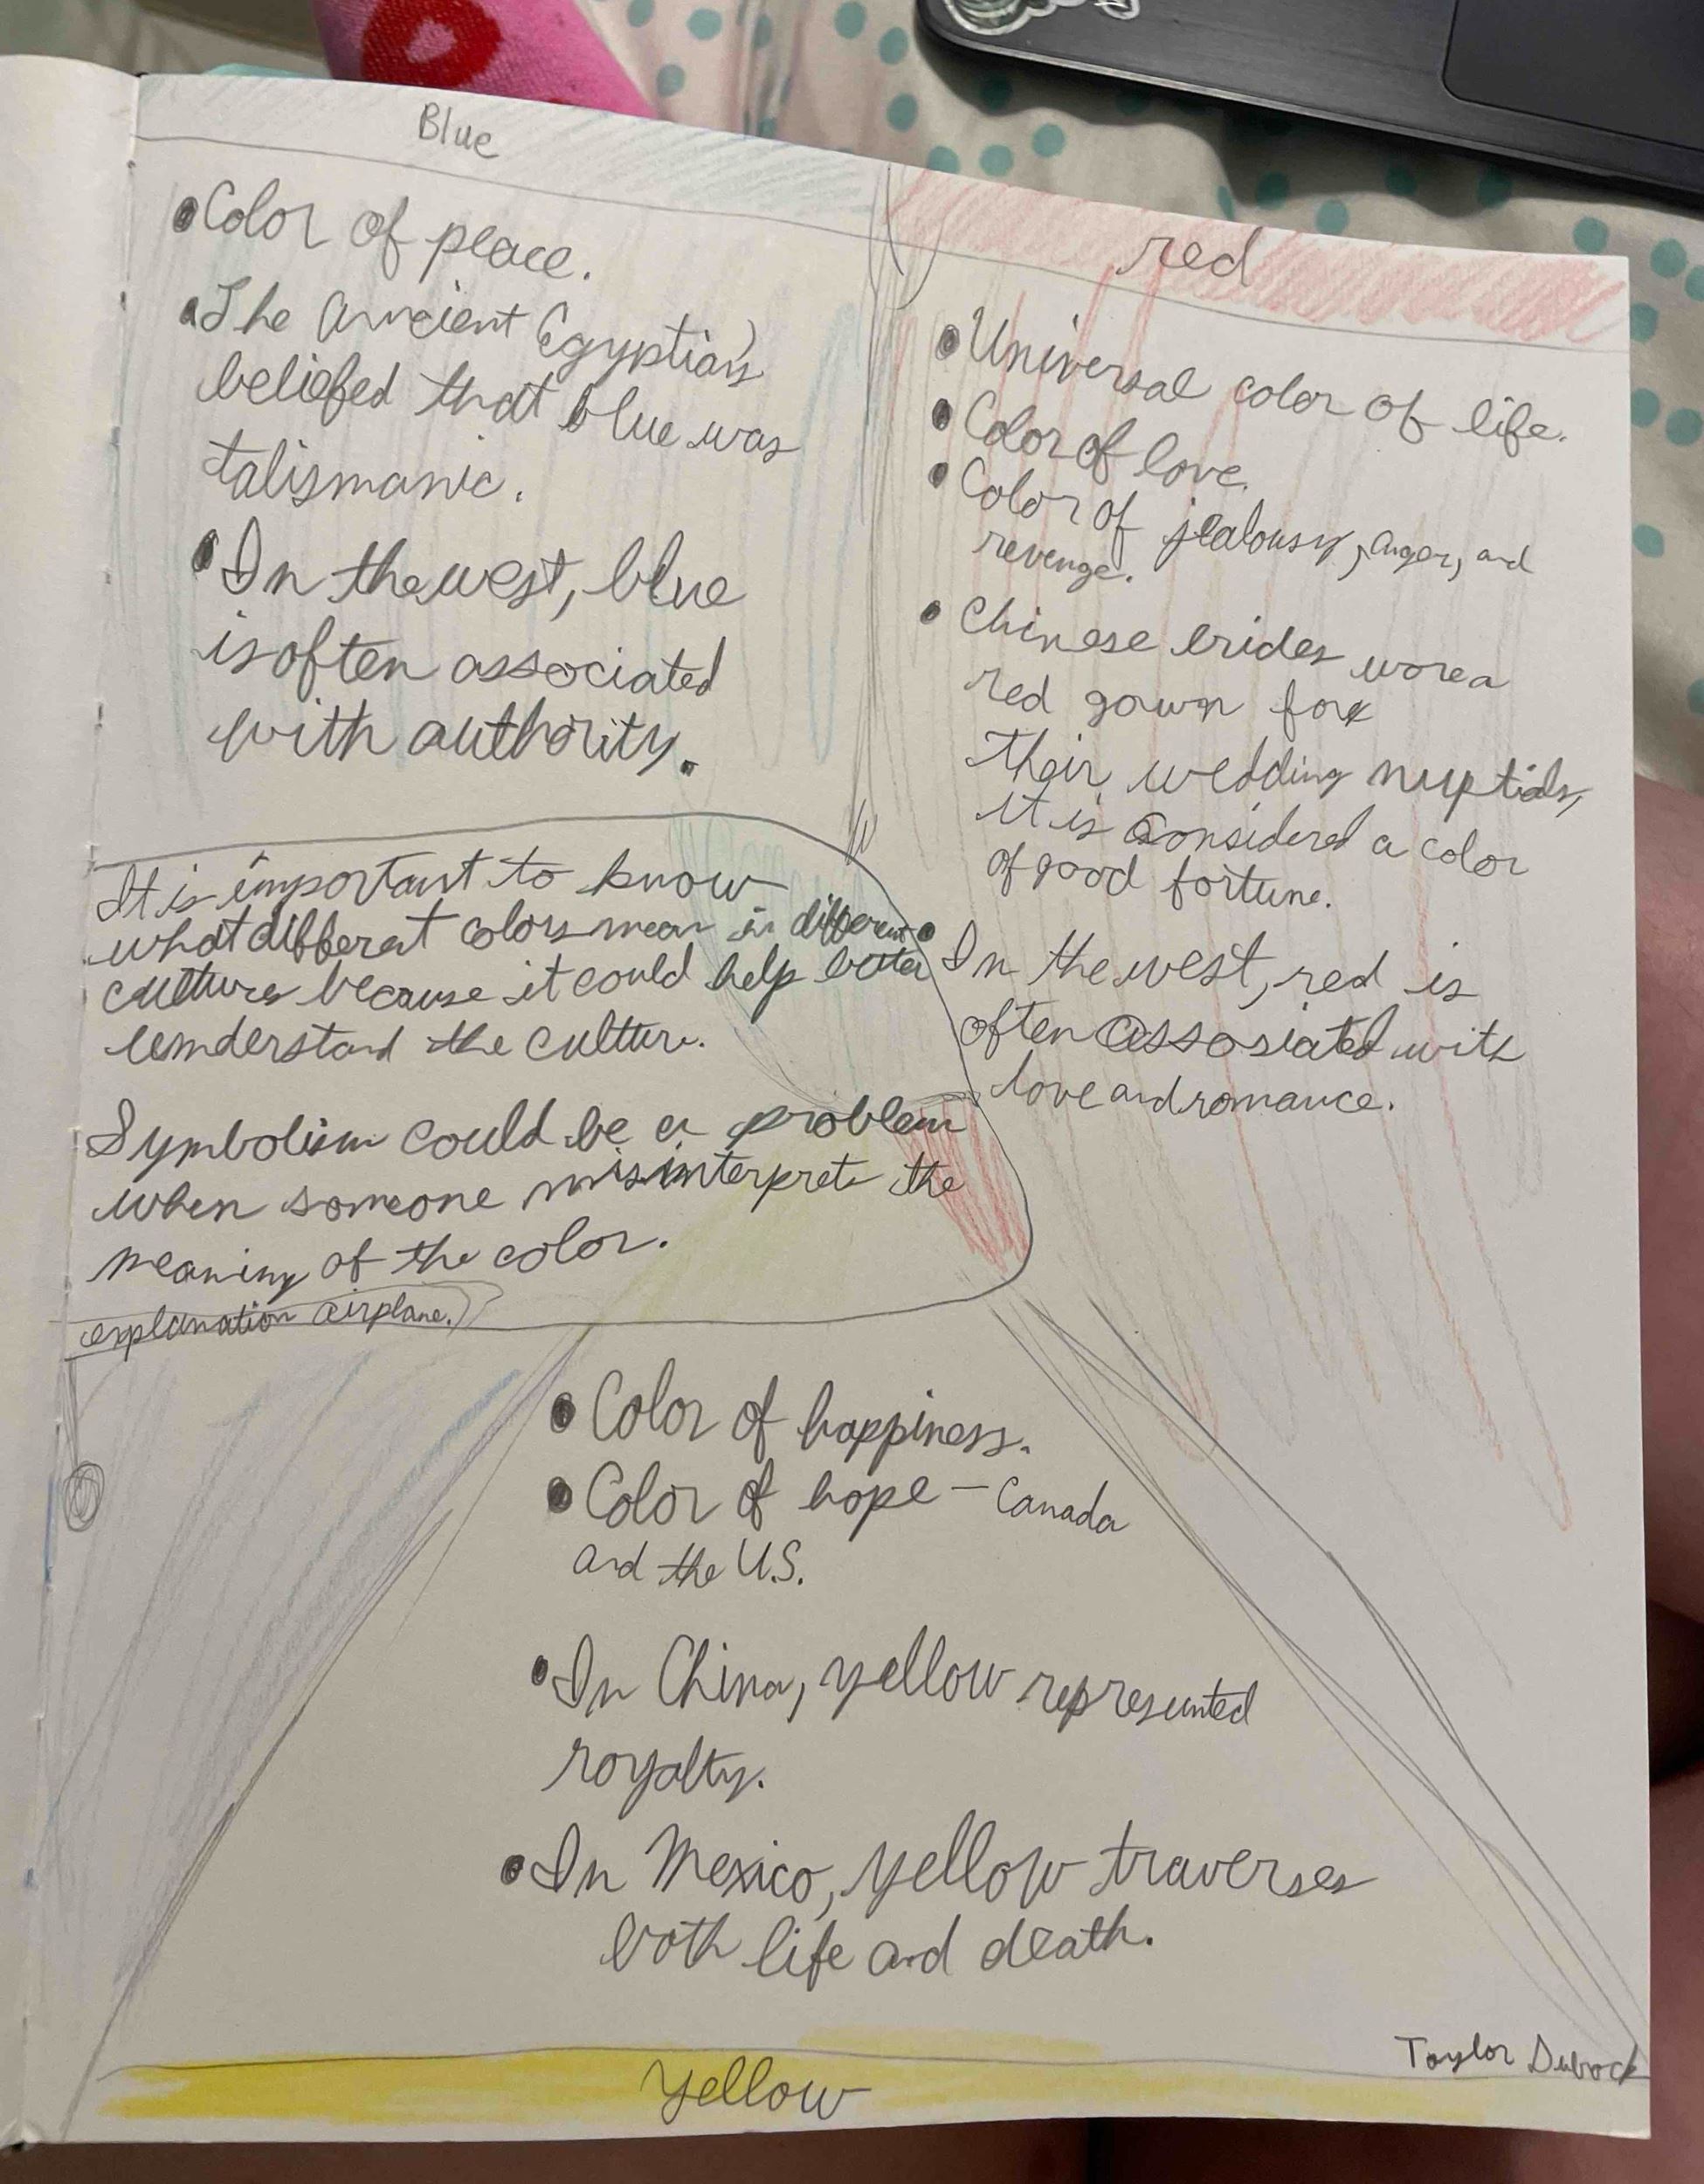 Blue
•Color of peace.
•The Ancient Egyptians
beliefed that blue was
talismanic.
•In the west, blue
is often associated
with authority.
red
•Universal color of life.
•Color of love.
•Color of jealousy, anger, and
revenge.
•Chinese brides wore a
red gown for
their wedding nuptials,
it is considered a color
of good fortune.
•In the west, red is
often assosiated with
love and romance.
It is important to know
what different colors mean in different
cultures because it could help better
understand the culture.
Symbolism could be a problem
when someone misinterprets the
meaning of the color.
explanation airplane.
•Color of happiness.
•Color of hope - Canada
and the U.S.
•In China, yellow represented
royalty.
•In Mexico, yellow traverses
both life and death.
Yellow
Taylor Dubock